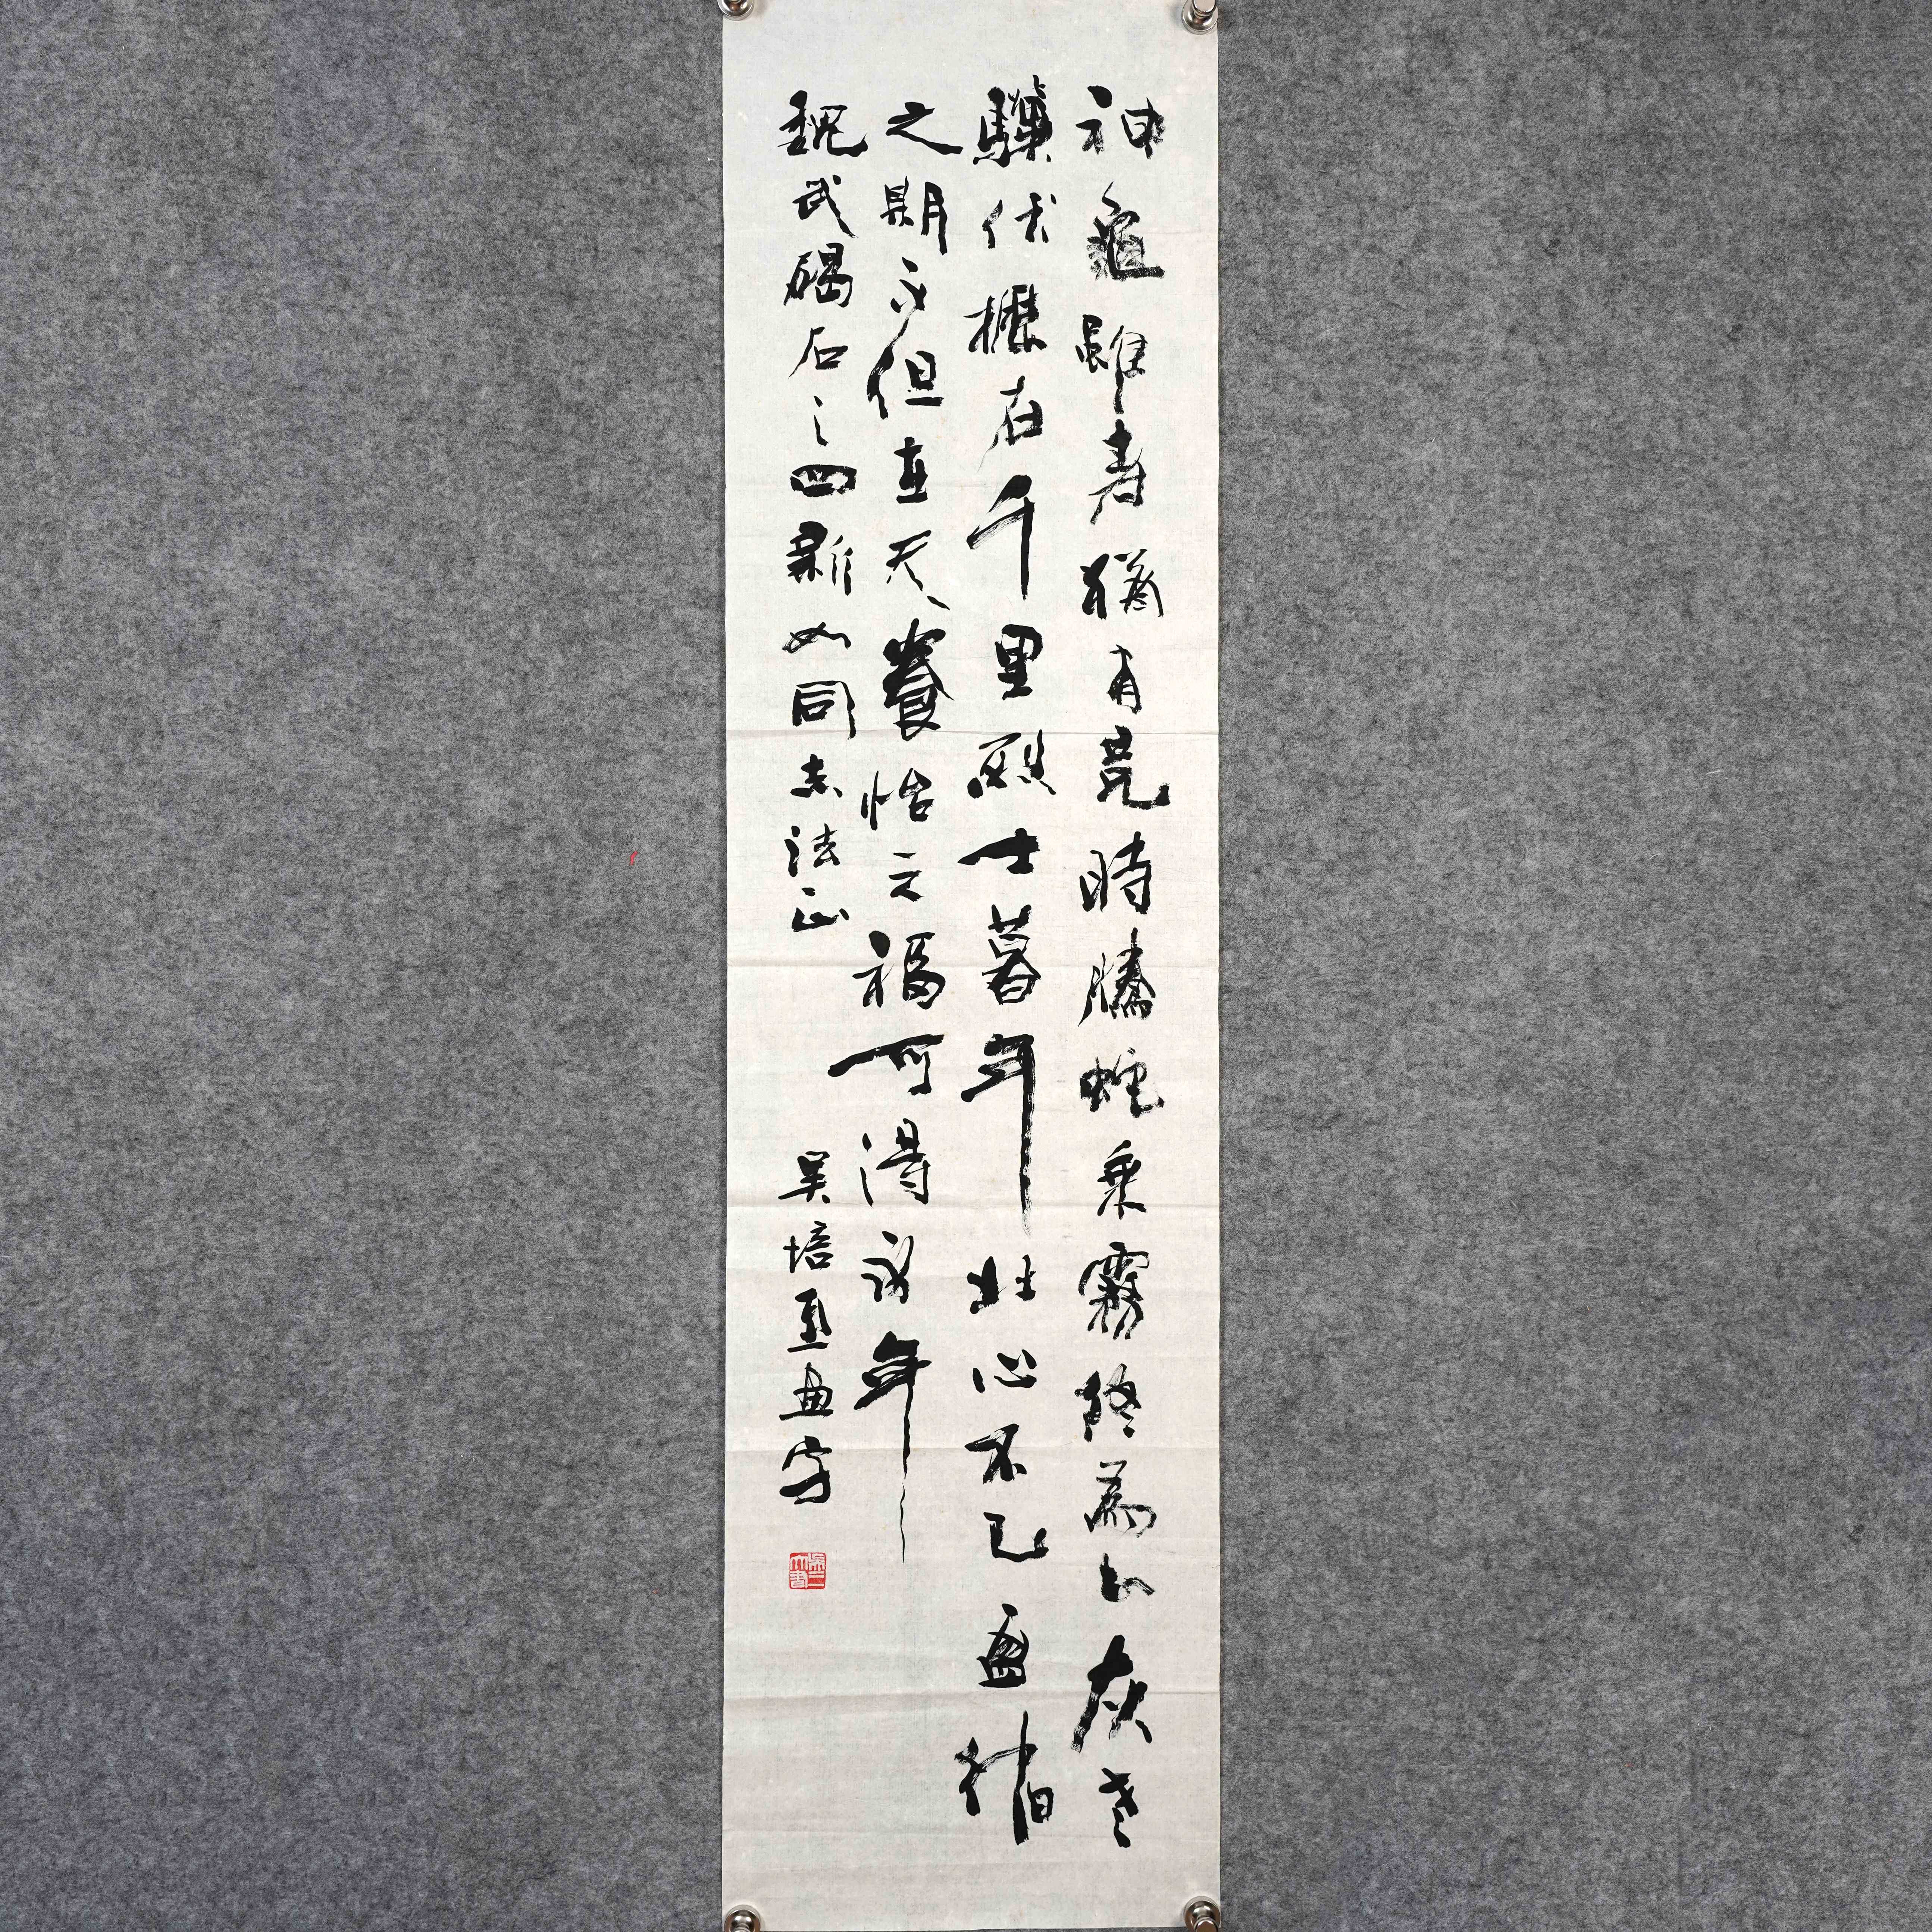 神龜雖壽猶有竟時騰蛇乘霧終為土灰老
驥伏櫪在千里烈士暮年壯心不已盈縮
之期不但在天養怡之福可得永年
魏武碣石之四 新如同志法正 吳培基
吳三大書